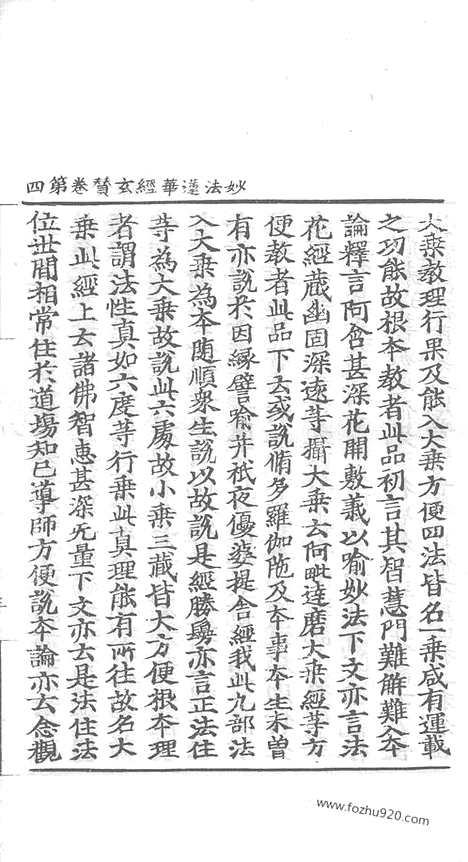 妙法蓮華經玄賛卷第四
大乗教理行果及能入大乗方便四法皆名一乗咸有運載
之功能故根本教者此品初言其智慧門難解難入本
論釋言阿含甚深花開敷義以喻妙法下文亦言法
花經蔵幽固深遠等攝大乗云阿毗達磨大乗經等方
便教者此品下云或説脩多羅伽陁及本事本生未曽
有亦説於因縁譬喻并祇夜優婆提舎經我此九部法
入大乗為本随順衆生説以故説是經勝鬘亦言正法住
等為大乗故説此六處故小乗三藏皆大方便根本理
者謂法性真如六度等行乗此真理能有所往故名大
乗此經上云諸佛智惠甚深无量下文亦云是法住法
位世間相常住於道場知已導師方便説本論亦云念觀
www.fozhu920.com